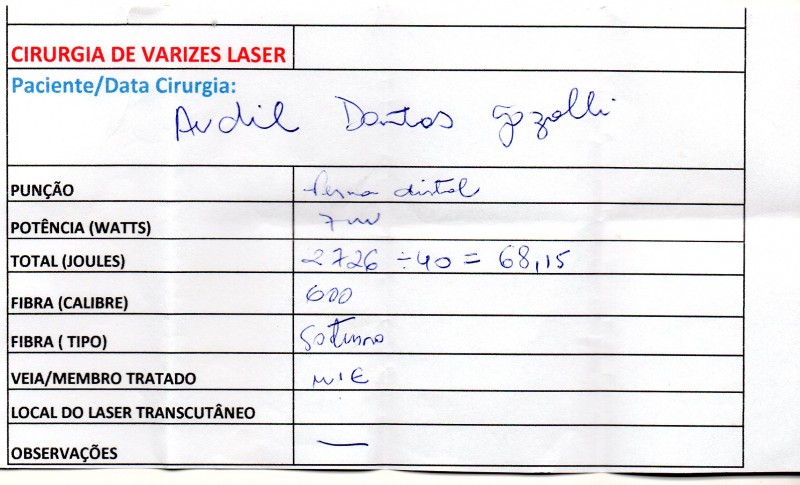 CIRURGIA DE VARIZES LASER
Paciente/Data Cirurgia:
Dantas
PUNÇÃO perna distal
POTÊNCIA (WATTS) 7w
TOTAL (JOULES) 2726 ÷40 = 68,15
FIBRA (CALIBRE) 600
FIBRA ( TIPO)
VEIA/MEMBRO TRATADO MIE
LOCAL DO LASER TRANSCUTÂNEO
OBSERVAÇÕES —